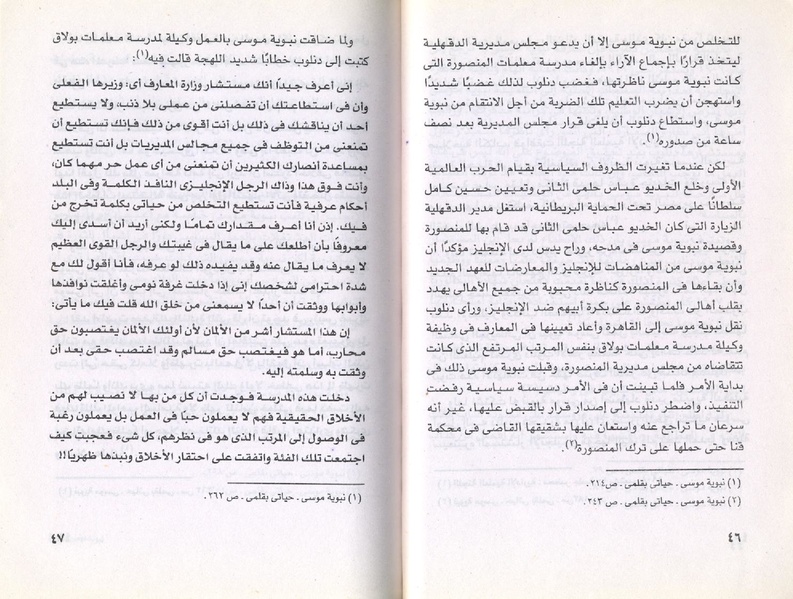 للتخلص من نبوية موسى إلا أن يدعو مجلس مديرية الدقهلية
ليتخذ قرارًا بإجماع الآراء بإلغاء مدرسة معلمات المنصورة التى
كانت نبوية موسى ناظرتها، فغضب دنلوب لذلك غضبًا شديدًا
واستهجن أن يضرب التعليم تلك الضربة من أجل الانتقام من نبوية
موسى، واستطاع دنلوب أن يلغى قرار مجلس المديرية بعد نصف
ساعة من صدوره(١).
لكن عندما تغيرت الظروف السياسية بقيام الحرب العالمية
الأولى وخلع الخديو عباس حلمى الثانى وتعيين حسين كامل
سلطانًا على مصر تحت الحماية البريطانية، استغل مدير الدقهلية
الزيارة التى كان الخديو عباس حلمى الثانى قد قام بها للمنصورة
وقصيدة نبوية موسى فى مدحه، وراح يدس لدى الإنجليز مؤكدًا أن
نبوية موسى من المناهضات للإنجليز والمعارضات للعهد الجديد
وأن بقاءها فى المنصورة كناظرة محبوبة من جميع الأهالى يهدد
بقلب أهالى المنصورة على بكرة أبيهم ضد الإنجليز، ورأى دنلوب
نقل نبوية موسى إلى القاهرة وأعاد تعيينها فى المعارف فى وظيفة
وكيلة مدرسة معلمات بولاق بنفس المرتب المرتفع الذى كانت
تتقاضاه من مجلس مديرية المنصورة، وقبلت نبوية موسى ذلك فى
بداية الأمر فلما تبينت أن فى الأمر دسيسة سياسية رفضت
التنفيذ، واضطر دنلوب إلى إصدار قرار بالقبض عليها، غير أنه
سرعان ما تراجع عنه واستعان عليها بشقيقها القاضى فى محكمة
قنا حتى حملها على ترك المنصورة(٢).
(١) نبوية موسى. حياتى بقلمى. ص٢١٤.
(٢) نبوية موسى. حياتى بقلمى. ص ٢٤٣.
٤٦
ولما ضاقت نبوية موسى بالعمل وكيلة لمدرسة معلمات بولاق
كتبت إلى دنلوب خطابًا شديد اللهجة قالت فيه(١):
إنى أعرف جيدًا أنك مستشار وزارة المعارف أى: وزيرها الفعلى
وأن فى استطاعتك أن تفصلنى من عملى بلا ذنب، ولا يستطيع
أحد أن يناقشك فى ذلك بل أنت أقوى من ذلك فإنك تستطيع أن
تمنعنى من التوظف فى جميع مجالس المديريات بل أنت تستطيع
بمساعدة أنصارك الكثيرين أن تمنعنى من أى عمل حر مهما كان،
وأنت فوق هذا وذاك الرجل الإنجليزى النافذ الكلمة وفى البلد
أحكام عرفية فأنت تستطيع التخلص من حياتى بكلمة تخرج من
فيك. إذن أنا أعرف مقدارك تمامًا ولكنى أريد أن أسدى إليك
معروفًا بأن أطلعك على ما يقال فى غيبتك والرجل القوى العظيم
لا يعرف ما يقال عنه وقد يفيده ذلك لو عرفه، فأنا أقول لك مع
شدة احترامى لشخصك إنى إذا دخلت غرفة نومى وأغلقت نوافذها
وأبوابها ووثقت أن أحدًا لا يسمعنى من خلق الله قلت فيك ما يأتى:
إن هذا المستشار أشر من الألمان لأن أولئك الألمان يغتصبون حق
محارب، أما هو فيغتصب حق مسالم وقد اغتصب حقى بعد أن
وثقت به وسلمته إليه.
دخلت هذه المدرسة فوجدت أن كل من بها لا نصيب لهم من
الأخلاق الحقيقية فهم لا يعملون حبًا فى العمل بل يعملون رغبة
فى الوصول إلى المرتب الذى هو فى نظرهم، كل شىء فعجبت كيف
اجتمعت تلك الفئة واتفقت على احتقار الأخلاق ونبذها ظهريًا!!
(١) نبوية موسى. حياتى بقلمى. ص ٢٦٢.
٤٧